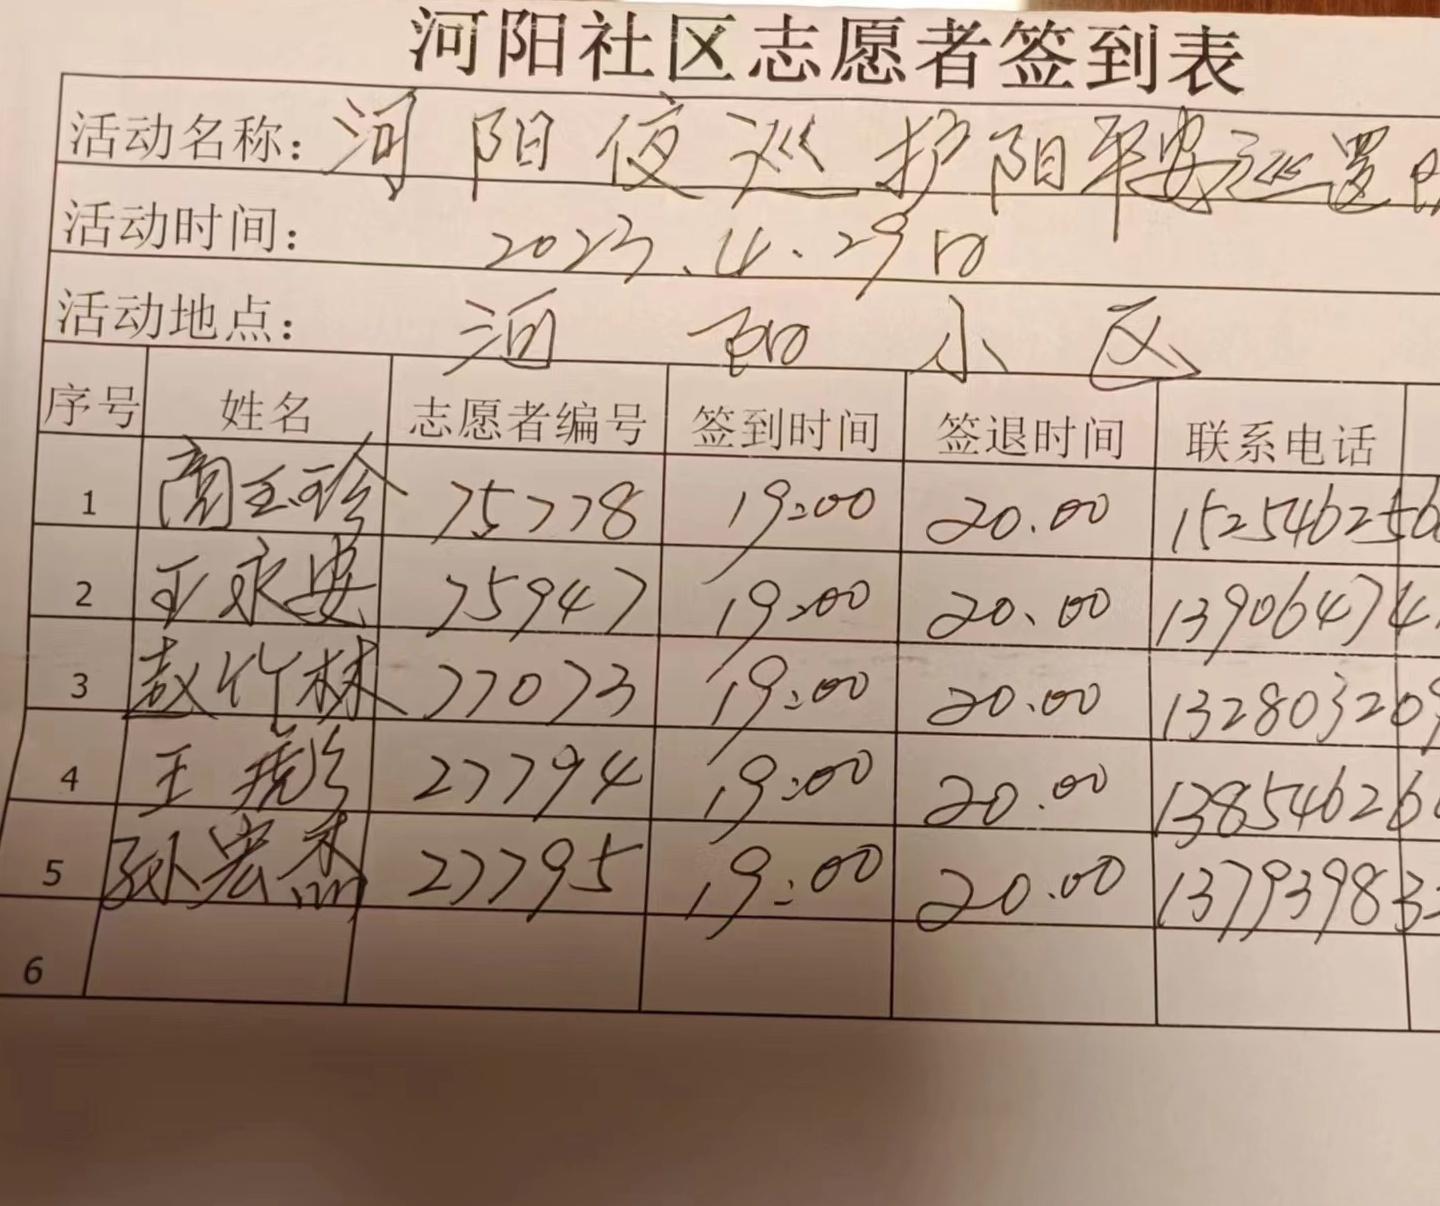 河阳社区志愿者签到表
活动名称: 河阳夜巡护阳平安巡逻
活动时间: 2023.4.29日
活动地点: 河阳小区
序号 姓名 志愿者编号 签到时间 签退时间 联系电话
1 75778 19:00 20.00 152546256
2 王永安 75947 19:00 20.00 13906474
3 赵竹林 77073 19:00 20.00 132803209
4 王 27794 19:00 20.00 138546266
5 孙宏杰 27795 19:00 20.00 137939833
6